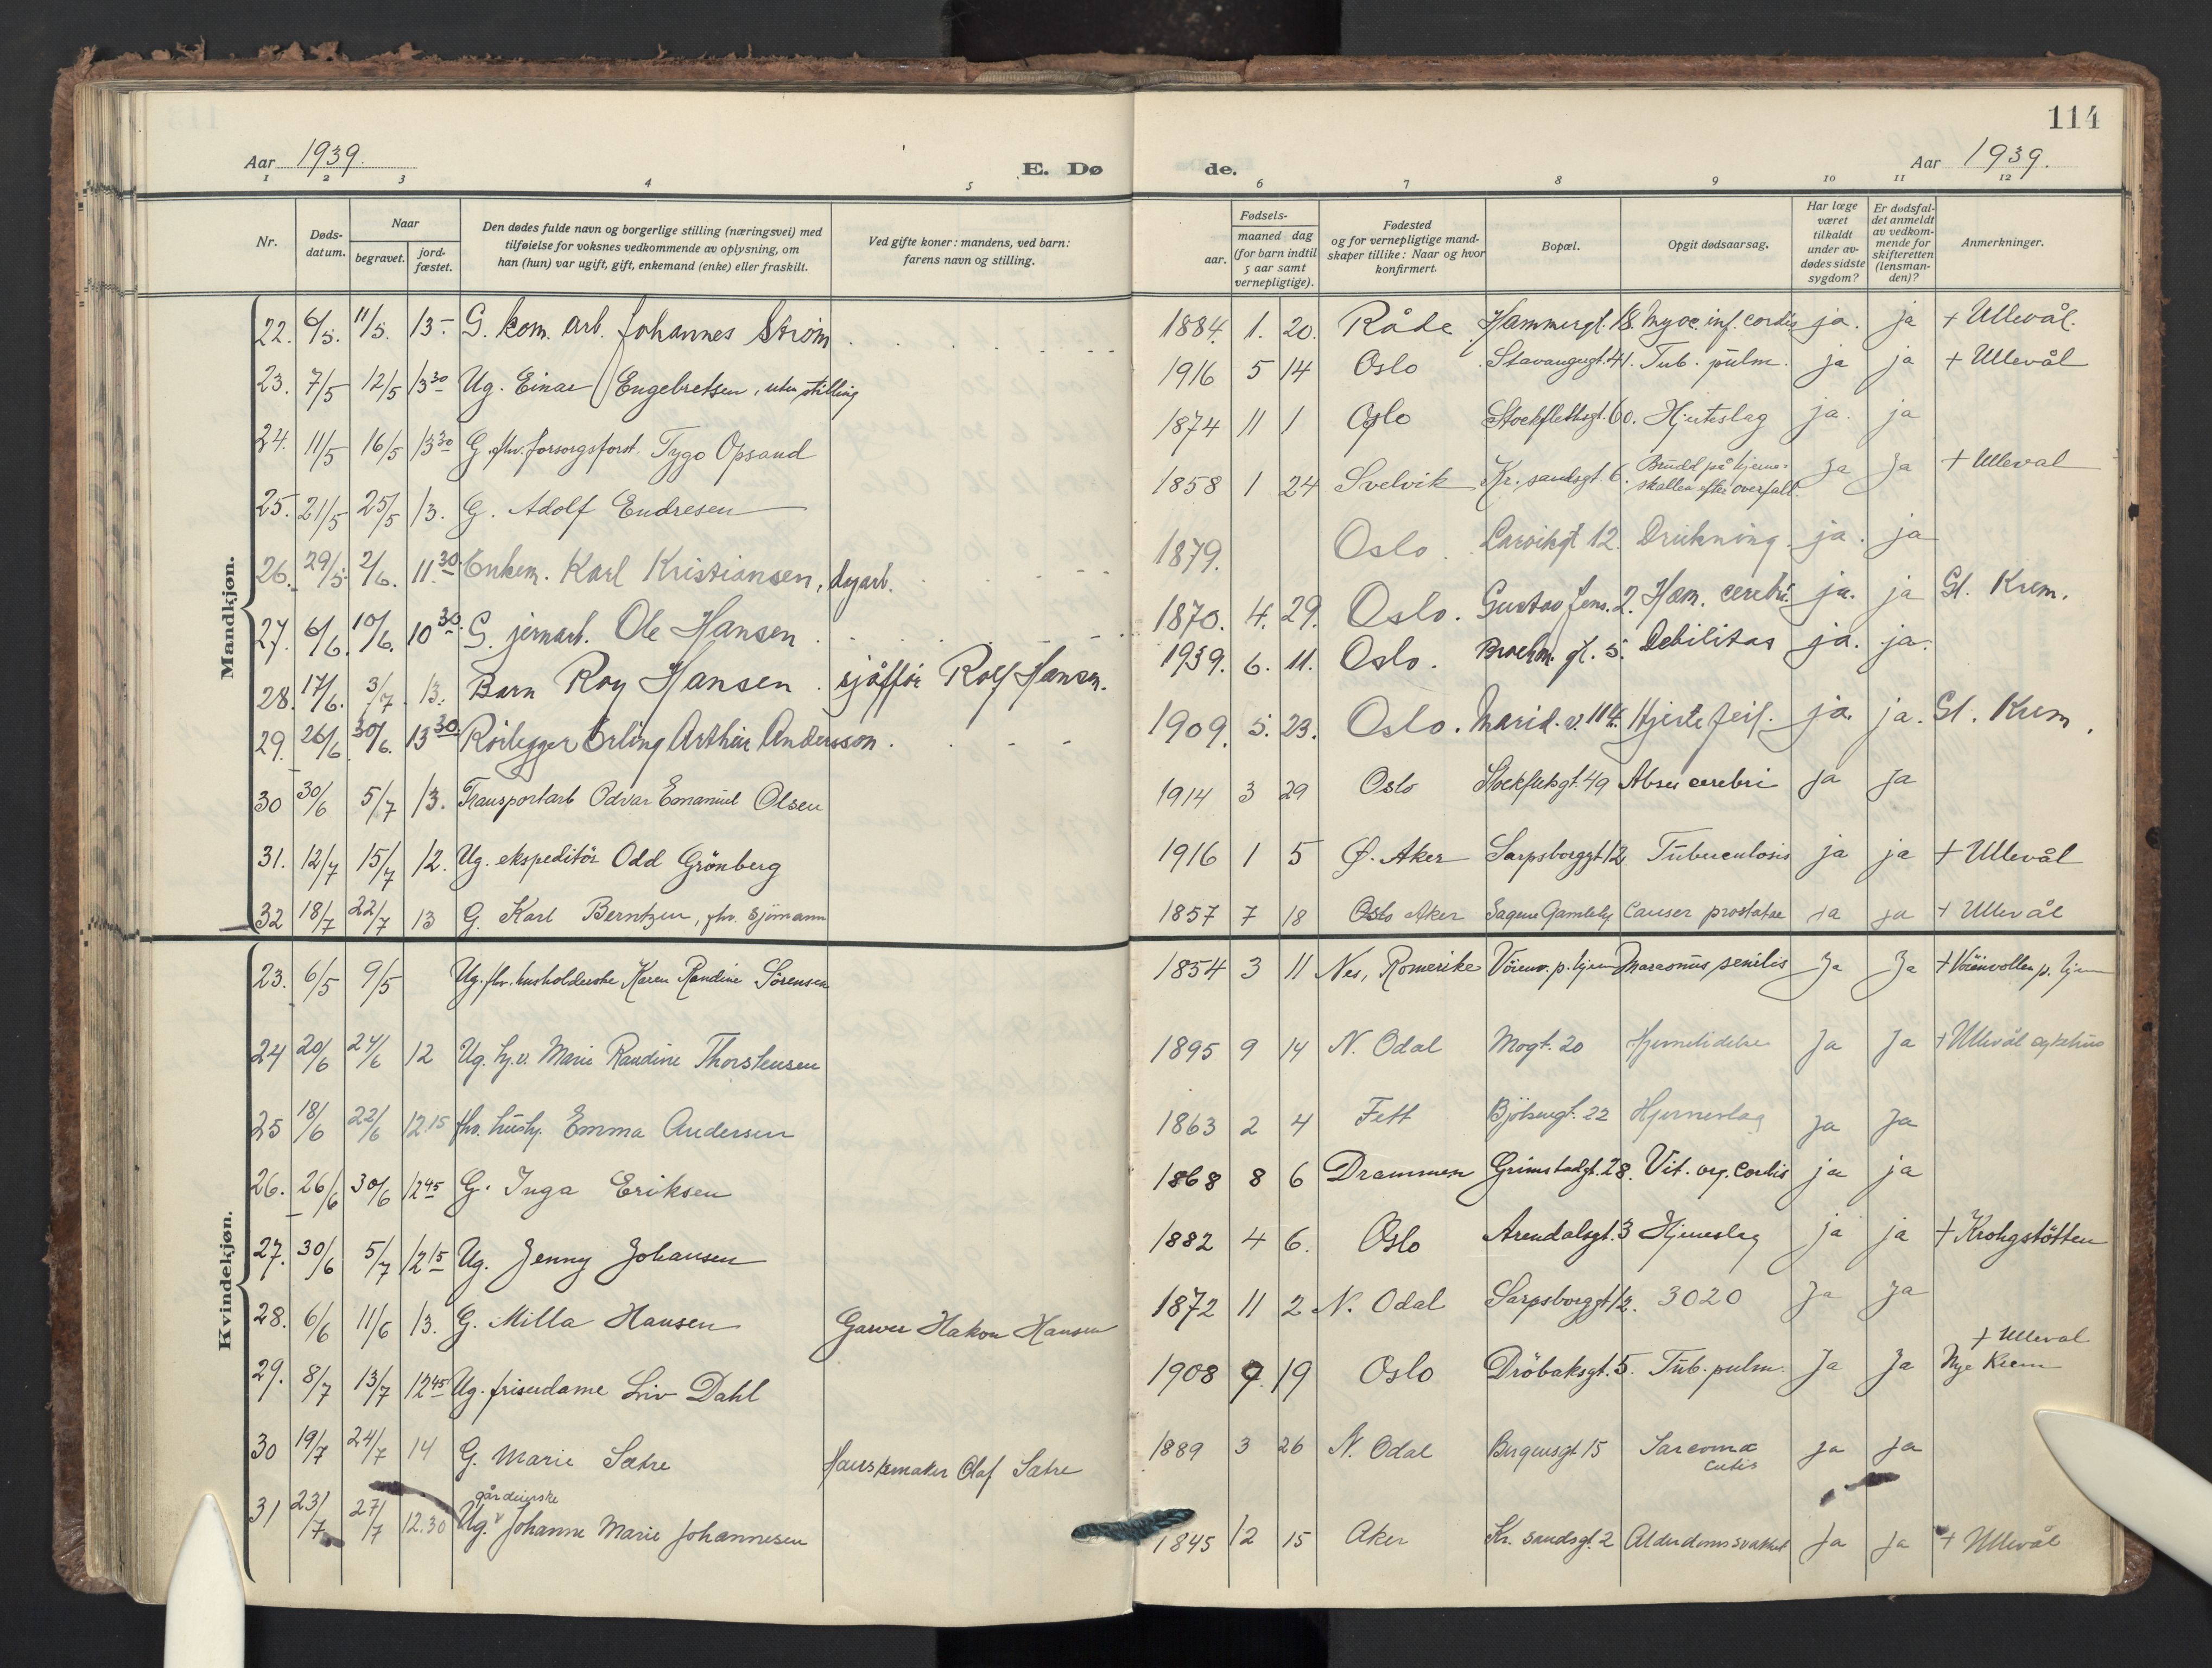 114
Aar 1939. E. Dø de. Aar 1939.
1 2 3 4 5 6 7 8 9 10 11 12
Nr.
Døds-
datum.
Naar
begravet.
jord-
fæstet.
Den dødes fulde navn og borgerlige stilling (næringsvei) med
tilføielse for voksnes vedkommende av oplysning, om
han (hun) var ugift, gift, enkemand (enke) eller fraskilt.
Ved gifte koner: mandens, ved barn:
farens navn og stilling.
Fødsels-
aar.
maaned dag
(for barn indtil
5 aar samt
vernepligtige).
Fødested
og for vernepligtige mand-
skaper tillike: Naar og hvor
konfirmert.
Bopæl.
Opgit dødsaarsag.
Har læge
været
tilkaldt
under av-
dødes sidste
sygdom?
Er dødsfal-
det anmeldt
av vedkom-
mende for
skifteretten
(lensman-
den)?
Anmerkninger.
Mandkjøn.
22. 6/5. 11/5. 13.- G. kom. arb. Johannes Strøm 1884. 1. 20. Råde Hammergt. 18. Myoc. inf. cordis ja. ja + Ullevål.
23. 7/5 12/5 13 30 Ug. Einar Engebretsen, uten stilling 1916 5 14 Oslo Stavangergt. 41. Tub. pulm. ja ja + Ullevål
24. 11/5 16/5 13 30 G. fhv. forsorgsforst. Tygo Opsand 1874 11 1 Oslo Stockflethsgt. 60. Hjerteslag ja. ja
25. 21/5 25/5 13. G. Adolf Endresen 1858 1 24 Svelvik Kr. sandsgt. 6. Brudd på hjerne-
skallen efter overfall. Ja Ja + Ulleval
26. 29/5. 2/6. 11.30 Enkem. Karl Kristiansen, dagarb. 1879. Oslo. Larvikgt 12. Drukning ja. ja
27. 6/6. 10/6. 10 30. G. jernarb. Ole Hansen 1870. 4. 29. Oslo. Gustav Jens. 2. Hæm. cerebri. ja. ja Gl. Krem.
28. 17/6. 3/7 13. Barn Roy Hansen. sjåfför Rolf Hansen. 1939. 6. 11. Oslo. gt. 5. Debilitas ja. ja.
29. 26/6. 30/6. 13 30. Rörlegger Erling Arthur Andersson. 1909. 5. 23. Oslo. Marid. v. 114. Hjertefeil. ja. ja. Gl. Krem.
30 30/6 5/7 13. Transportarb Odvar Emanuel Olsen 1914 3 29 Oslo Stockfletsgt. 49 Absc. cerebri ja ja
31. 12/7 15/7 12. Ug. ekspeditör Odd Grönberg 1916 1 5 Ø. Aker Sarpsborggt 12 Tuberculosis ja ja + Ullevål
32 18/7 22/7 13 G. Karl Berntzen, fhv. sjömann 1857 7 18 Oslo Aker Sagene Gamlehj Cancer prostatae ja ja + Ullevål
Kvindekjøn.
23. 6/5 9/5 Ug. fhv. husholderske Karen Randine Sörensen 1854 3 11 Nes, Romerike Vöienv. p. hjem Marasmus senilis Ja Ja + Vöienvollen p. hjem
24 20/6 24/6 12 Ug. hj.v. Marie Randine Thorstensen 1895 9 14 N. Odal Mogt. 20 Hjernelidelse Ja Ja + Ullevål sykehus
25 18/6 22/6 12.15 fhv. hushj. Emma Andersen 1863 2 4 Fett Bjölsengt. 22 Hjerneslag ja ja
26. 26/6 30/6 12 45 G. Inga Eriksen 1868 8 6 Drammen Grimstadgt. 28. Vit. org. cordis ja ja
27. 30/6 5/7 12 15 Ug. Jenny Johansen 1882 4 6. Oslo Arendalsgt. 3 Hjerneslag ja ja + Krohgstötten
28. 6/6 11/6 13. G. Milla Hansen Garver Hakon Hansen 1872 11 2 N. Odal Sarpsborggt 12. 3020 Ja Ja
29. 8/7 13/7 12 45 Ug. frisördame Liv Dahl 1908 9. 19 Oslo Dröbaksgt. 5. Tub. pulm. Ja Ja + Ulleval
Nye Krem
30 19/7 24/7 14 G. Marie Sætre Olaf Sætre 1889 3 26 N. Odal Bergensgt 15 Sarcoma
cutis ja ja
31 23/7 27/7 12.30 Ug. gårdeierske Johanne Marie Johannesen 1845 12 15 Aker Kr. sandsgt. 2 Alderdomssvakhet Ja Ja + Ullevål